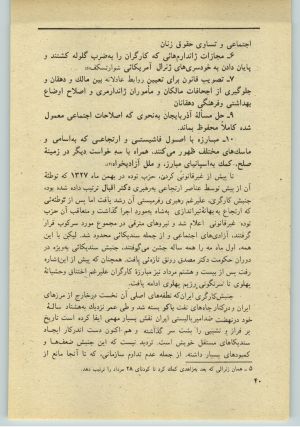 اجتماعی و تساوی حقوق زنان
۶ــ مجازات ژاندارم‌هائی که کارگران را به‌ضرب گلوله کشتند و
پایان دادن به خودسری‌های ژنرال آمریکائی شوارتسکف۵.
۷ــ تصویب قانون برای تعیین روابط عادلانه بین مالک و دهقان و
جلوگیری از اجحافات مالکان و مأموران ژاندارمری و اصلاح اوضاع
بهداشتی و فرهنگی دهقانان
۹ــ حل مسألهٔ آذربایجان به‌نحوی که اصلاحات اجتماعی معمول
شده کاملاً محفوظ بماند.
۱۰ــ مبارزه با اصول فاشیستی و ارتجاعی که به‌اسامی و
ماسک‌های مختلف ظهور می‌کنند، همراه با سه خواست دیگر در زمینهٔ
صلح، کمک به‌اسپانیای مبارز، و ملل آزادیخواه.
تا پیش از غیرقانونی کردن، حزب توده در بهمن ماه ۱۳۲۷ که توطئهٔ
آن از پیش توسط عناصر ارتجاعی به‌رهبری دکتر اقبال ترتیب داده شده بود،
جنبش کارگری، علیرغم رهبری رفرمیستی آن رشد یافت اما پس از توطئه‌ئی
که ارتجاع به بهانهٔ تیراندازی به‌شاه به‌مورد اجرا گذاشت و متعاقب آن حزب
توده غیرقانونی اعلام شد و نیروهای مترقی در مجموع مورد سرکوب قرار
گرفتند، آزادی‌های اجتماعی و از جمله سندیکائی محدود شد. لیکن با این
همه، اول ماه مه را همه ساله جشن می‌گرفتند، جنبش سندیکائی به‌ویژه در
دوران حکومت دکتر مصدق رونق تازه‌ئی یافت. همچنان که پیش از این اشاره
رفت پس از بیست و هشتم مرداد نیز مبارزهٔ کارگران علیرغم اختناق وحشیانهٔ
پهلوی تا سرنگونی رژیم پهلوی ادامه یافت.
جنبش کارگری ایران که نطفه‌های اصلی آن نخست در خارج از مرزهای
ایران و در کنار چاه‌های نفت باکو بسته شد و طی عمر نزدیک به‌هشتاد سالهٔ
خود در نهضت ضدامپریالیستی ایران نقش بسیار مهمی ایفا کرده است تاریخ
پر فراز و نشیبی را پشت سر گذاشته و هم‌اکنون دست اندرکار ایجاد
سندیکاهای مستقل خویش است. تردید نیست که این جنبش ضعف‌ها و
کمبودهای بسیار داشته، از جمله عدم تداوم سازمانی، که تا آنجا مانع از
۵ ــ همان ژنرالی که بعد به‌زاهدی کمک کرد تا کودتای ۲۸ مرداد را ترتیب دهد.
۴۰